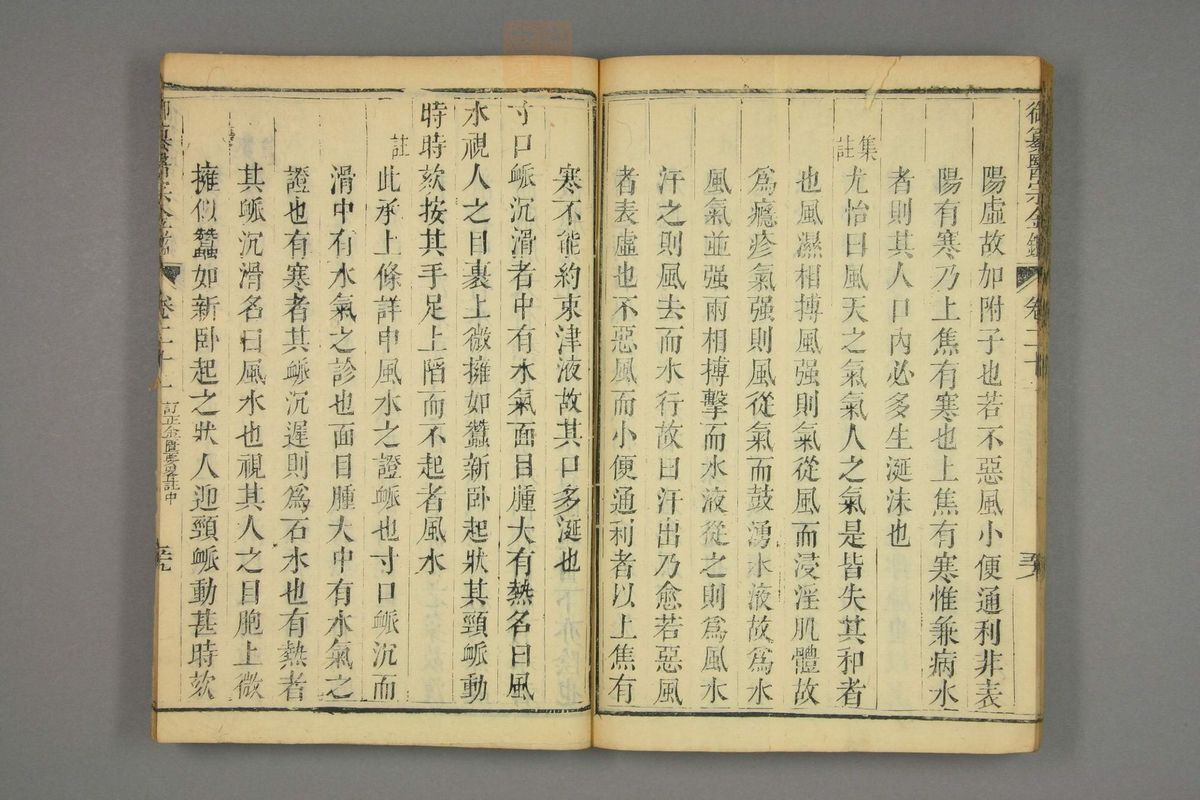 陽虛故如附子也若不惡風小便通利非表
陽有寒乃上焦有寒也上焦有寒惟兼病水
者則其人口內必多生涎沫也
集註
尤怡曰風天之氣氣人之氣是皆失其和者
也風濕相搏風强則氣從風而浸淫肌體故
爲癮疹氣强則風從氣而鼓湧水液故爲水
風氣並强兩相搏擊而水液從之則爲風水
汗之則風去而水行故曰汗出乃愈若惡風
者表虛也不惡風而小便通利者以上焦有
寒不能約束津液故其口多涎也
寸口脈沉滑者中有水氣面目腫大有熱名曰風
水視人之目裹上微擁如蠶新卧起狀其頸脈動
時時欬按其手足上陷而不起者風水
註
此承上條詳申風水之證脈也寸口脈沉而
滑中有水氣之診也面目腫大中有水氣之
證也有寒者其脈沉遲則爲石水也有熱者
其脈沉滑名曰風水也視其人之目胞上微
擁似蠶如新卧起之狀人迎頸脈動甚時欬
卷二十一
訂正金匱要畧註中